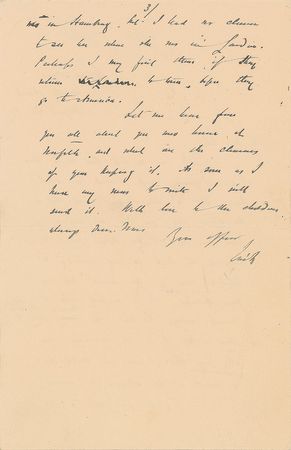 3/
in Hamburg, but I had no chance
to see her when she was in London.
Perhaps I may find them if they
return to town, before they
go to America.
Let me hear from
you all about you and home at
Norfolk, and what are the chances
of your keeping it. As soon as I
have any news to write I will
send it. With love to the children,
always
Your affect